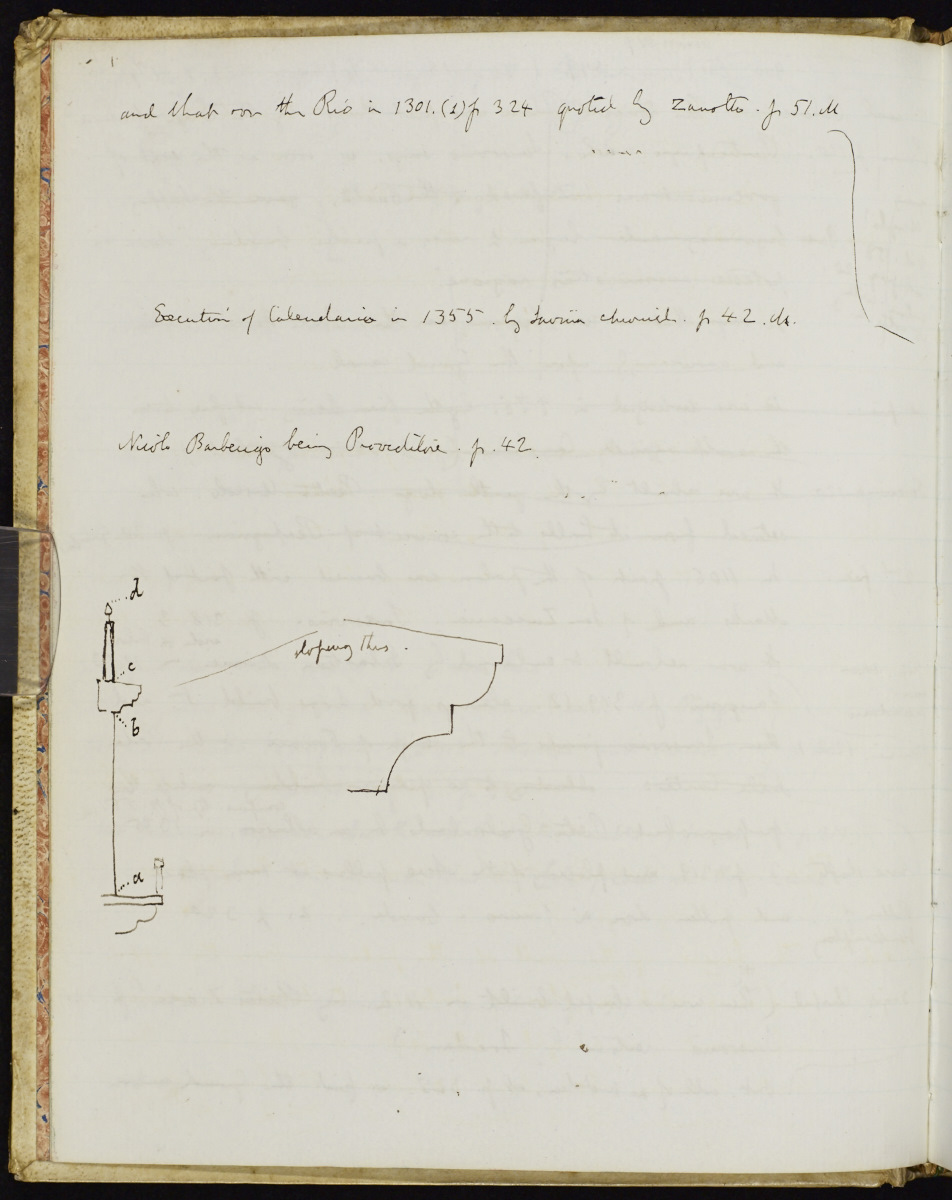 and that on the Rio in 1301. (1) p 324 quoted by Zanotto. p 51. M
Execution of Calendario in 1355. by Savina chronicle. p 42. M.
Nicolo Barberigo being Proveditore. p. 42.
d
sloping this.
c
b
a